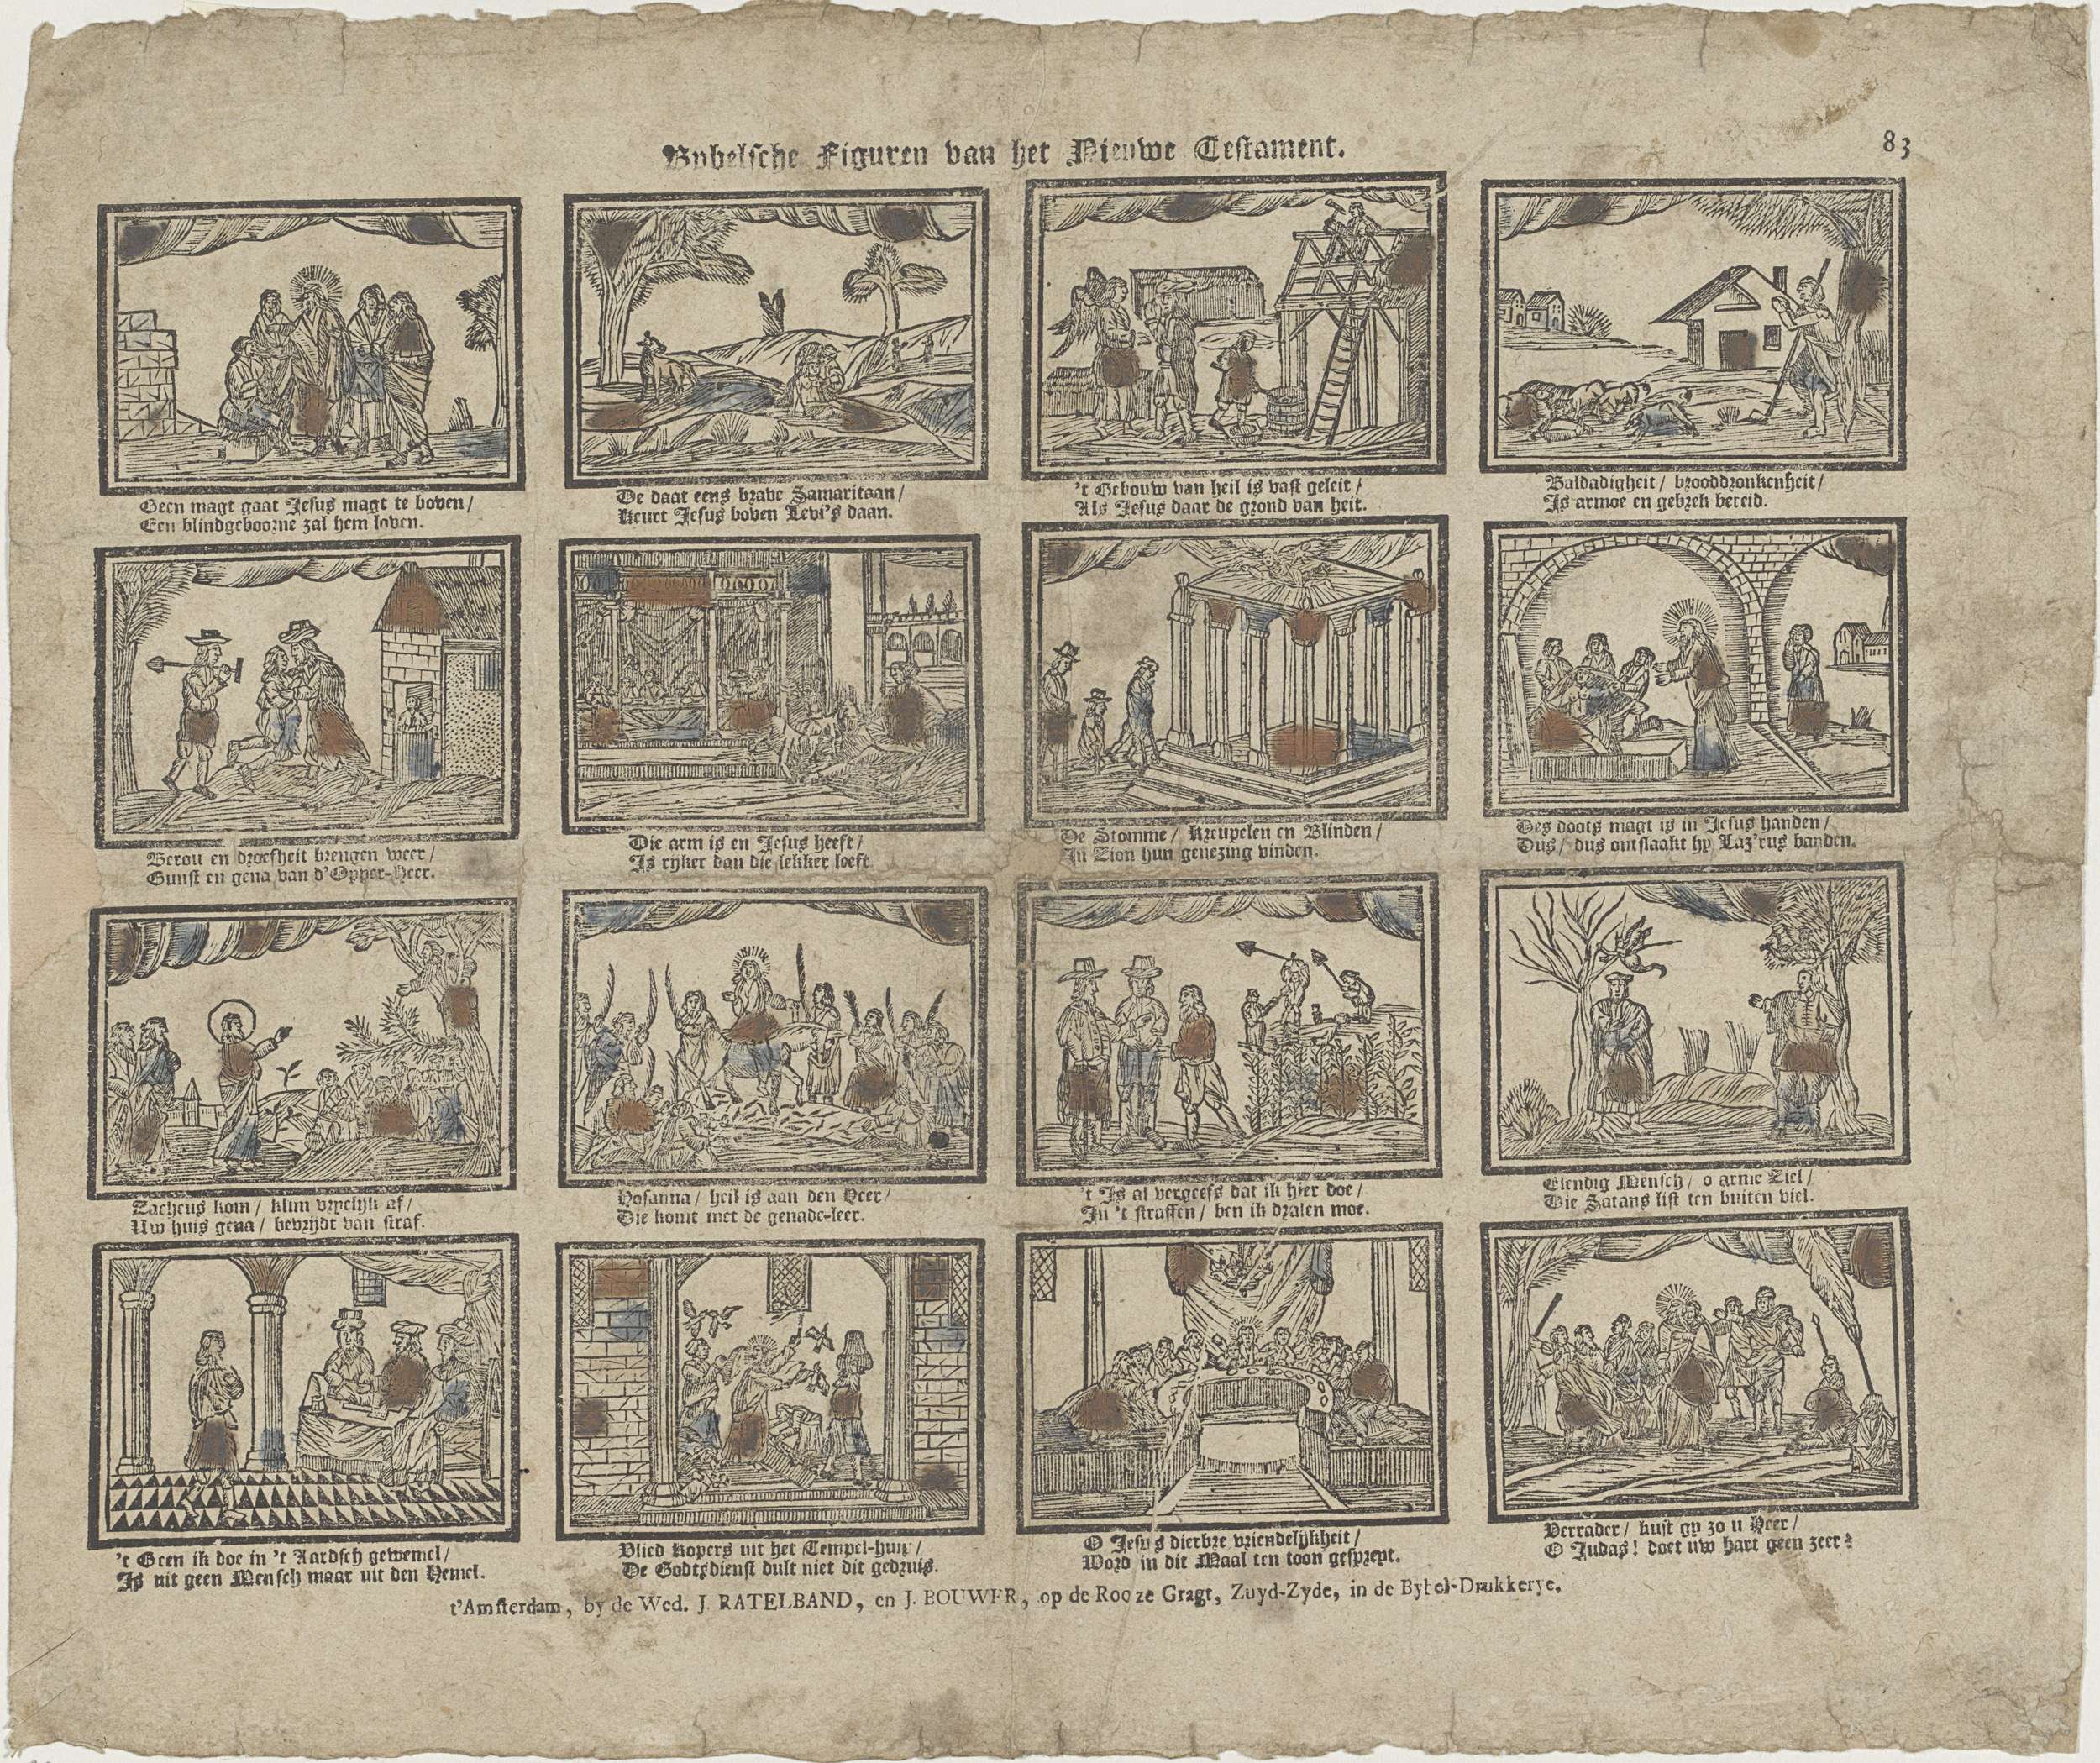 Bybelsche Figuren van het Nieuwe Testament.
83
Geen magt gaat Jesus magt te boven/
Een blindgeboorne zal hem loven.
De daat eens brave Samaritaan/
Keurt Jesus boven Levi's daan.
't Gebouw van heil is vast geleit/
Als Jesus daar de grond van heit.
Baldadigheit/ brooddronkenheit/
Is armoe en gebrek bereid.
Berou en droefheit brengen weer/
Gunst en gena van d'Opper-Heer.
Die arm is en Jesus heeft/
Is ryker dan die lekker leeft.
De Stomme/ Kreupelen en Blinden/
In Zion hun genezing vinden.
Des doots magt is in Jesus handen/
Dus/ dus ontslaakt hy Laz'rus banden.
Zacheus kom/ klim vryelyk af/
Uw huis gena/ bevrydt van straf.
Hosanna/ heil is aan den Heer/
Die komt met de genade-leer.
't Is al vergeefs dat ik hier doe/
In 't straffen/ ben ik dralen moe.
Elendig Mensch/ o arme Ziel/
Die Satans list ten buiten viel.
't Geen ik doe in 't Aardsch gewemel/
Is uit geen Mensch maar uit den Hemel.
Vlied Kopers uit het Tempel-huis/
De Godtsdienst dult niet dit gedruis.
O Jesus dierbre vriendelykheit/
Word in dit Maal ten toon gespreyt.
Verrader/ kust gy zo u Heer/
O Judas! doet uw hart geen zeer?
t'Amsterdam, by de Wed. J. RATELBAND, en J. BOUWER, op de Rooze Gragt, Zuyd-Zyde, in de Bybel-Drukkerye.